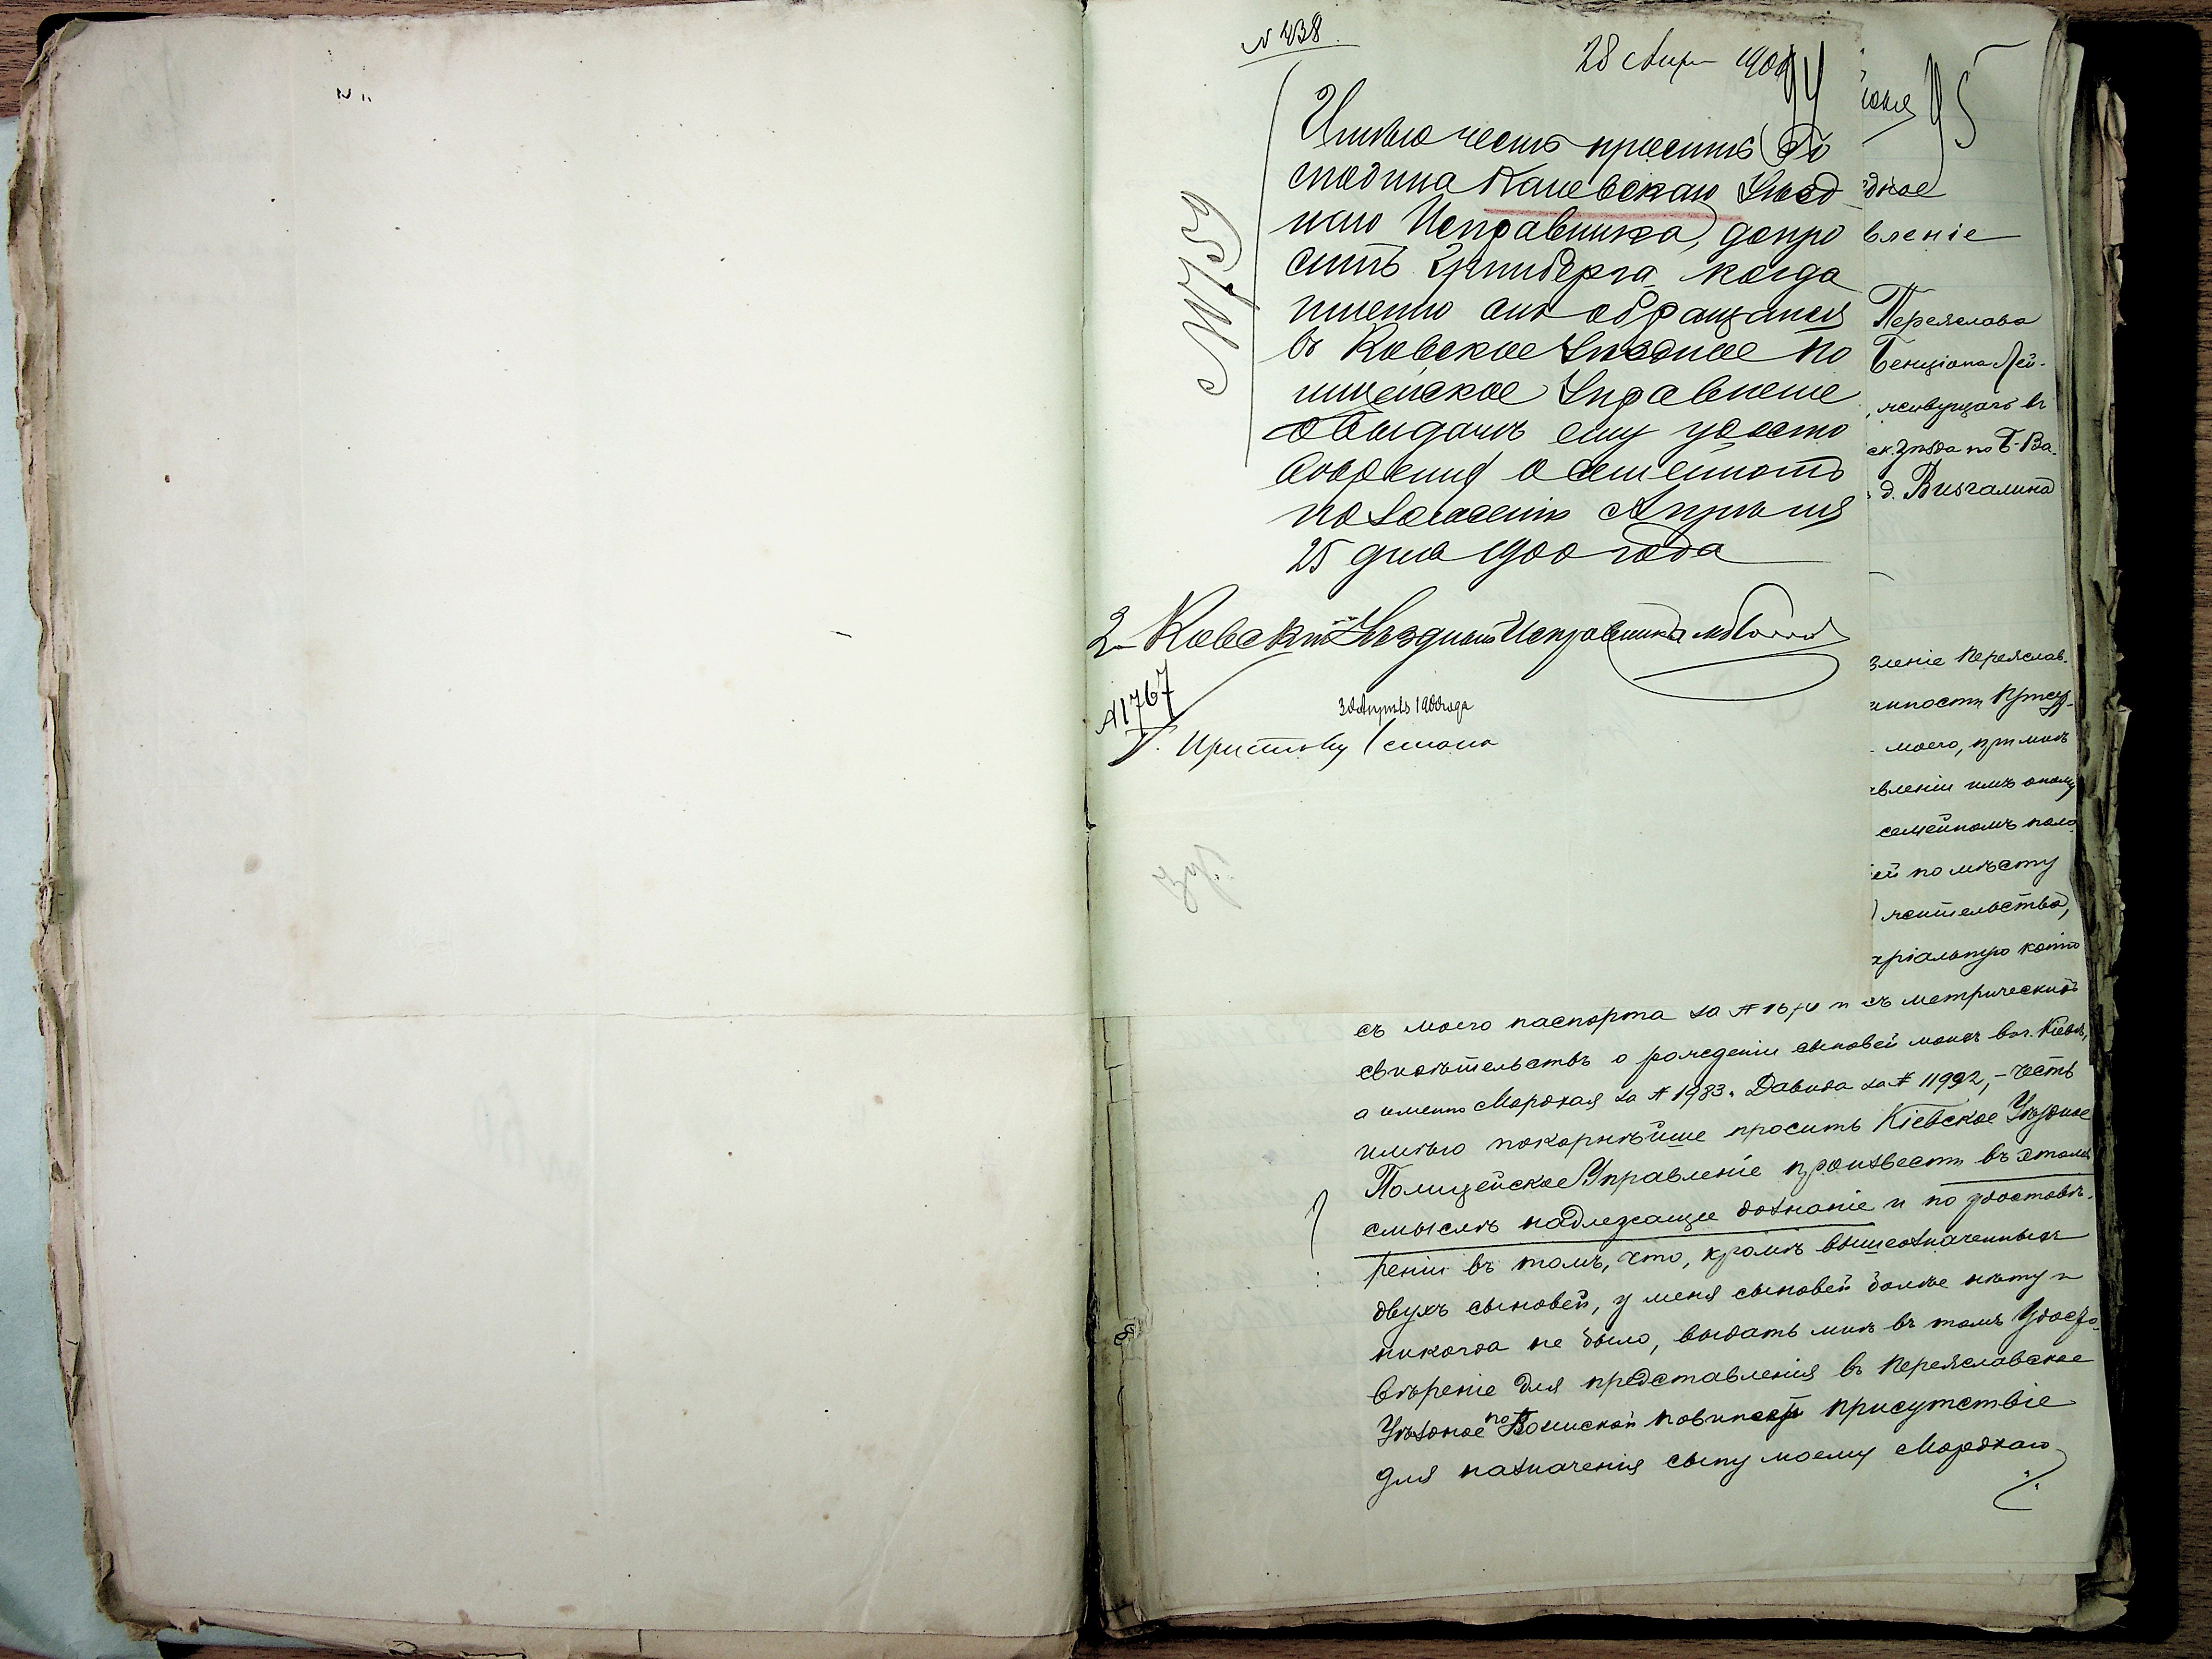 28 Апр 1900
94
Имѣю честь просить Го
сподина Каневскаго Уѣзд
наго Исправника, допро
сить когда
именно онъ обращался
въ Кіевское Уѣздное По
лицейское Управленіе
о выдачѣ ему удосто
вѣренія о семейномъ
положеніи Апрѣля
25 дня 1900 года
Уѣздный Исправникъ
30 Апрѣля 1900 года
Г. Приставу 1 стана
95
дное
вленіе
Переяслава
Бенціона Лей-
живущаго въ
ск. уѣзда по Б-Ва.
д.
вленіе Переяслав-
инности Присут-
моего, при мнѣ
вленіи имъ
семейномъ поло
ей по мѣсту
жительства,
ріальную копію
съ моего паспорта за № и съ метрическихъ
свидѣтельствъ о рожденіи сыновей моихъ въ г. Кіевѣ,
а именно Мордхая за № 1983 и Давида за № 11992, - честь
имѣю покорнѣйше просить Кіевское Уѣздное
Полицейское Управленіе произвесть въ этомъ
смыслѣ надлежащее дознаніе и по удостовѣ-
реніи въ томъ, что, кромѣ вышеозначенныхъ
двухъ сыновей, у меня сыновей болѣе нѣту и
никогда не было, выдать мнѣ въ томъ Удосто-
вѣреніе для представленія въ Переяславское
Уѣздное по Воинской повинности присутствіе
для назначенія сыну моему Мордхаю